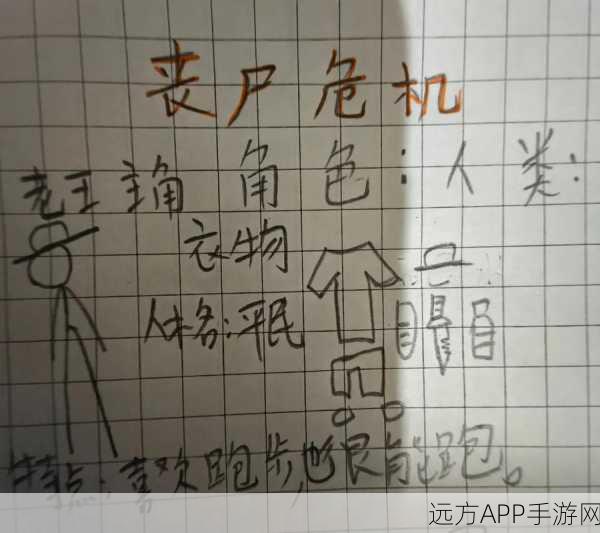 丧尸危机
老王 主角 角色:人类:
衣物
人格:平民
特点:喜欢跑步,也很能跑。
远方APP手游网